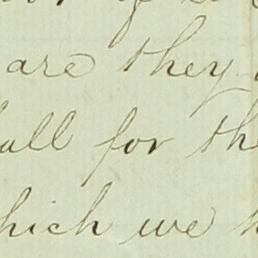 are they
all for the
which we